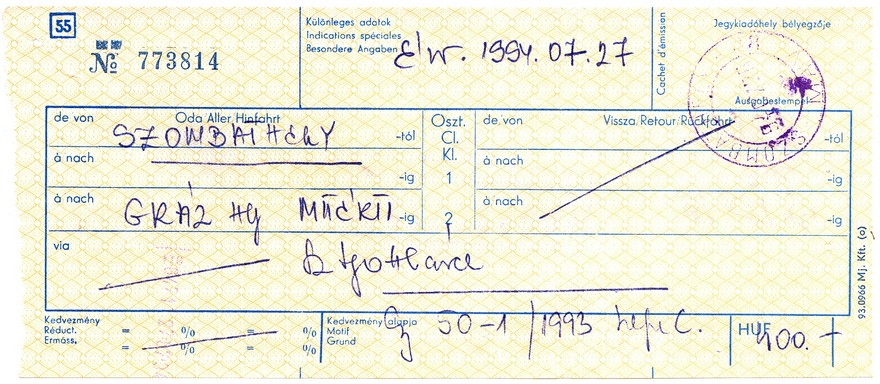 55
№ 773814
Különleges adatok
Indications spéciales
Besondere Angaben
É/W. 1994.07.27
Cachet d'émission
Jegykiadóhely bélyegzője
Ausgabestempel
de von Oda Aller Hinfahrt
SZOMBATHELY -tól
à nach -ig
à nach
GRÁZ -ig
Oszt.
Cl.
Kl.
1
2
de von Vissza Retour Rückfahrt
-tól
à nach -ig
à nach -ig
via
Kedvezmény
Réduct. = % = %
Ermäss. = % = %
Kedvezmény alapja
Motif
Grund
50-1/1993
HUF 400.-
93.0966 Mj. Kft. (o)